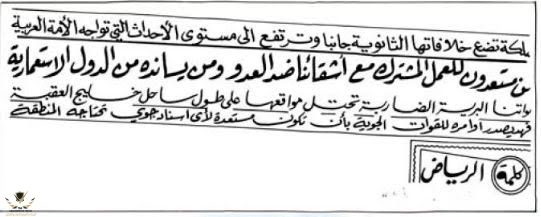 ملكة تضع خلافاتها الثانوية جانبا وترتفع الى مستوى الأحداث التي تواجه الأمة العربية
ن مستعدون للعمل المشترك مع أشقائنا ضد العدو ومن يسانده من الدول الاستعمارية
واتنا البرية الضاربة تحتل مواقعها على طول ساحل خليج العقبة
فهد يصدر أوامره للقوات الجوية بأن تكون مستعدة لأى اسناد جوي تحتاجه المنطقة
كلمة الرياض